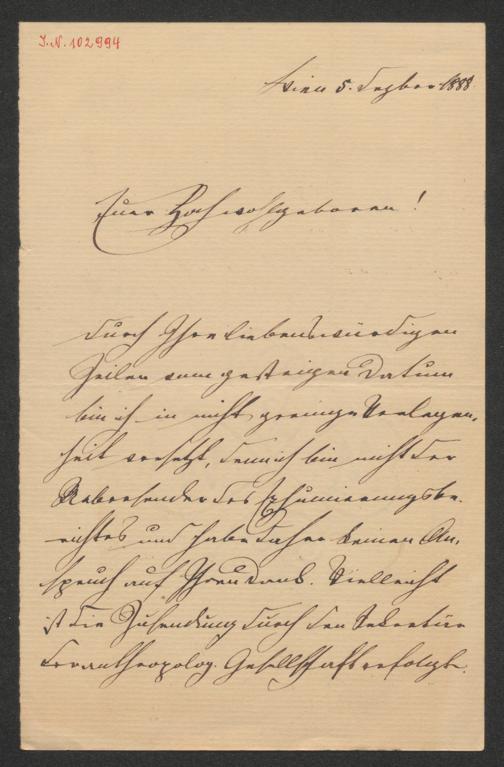 J.N. 102994
Wien 5. Dezber 1888
Euer Hochwohlgeboren!
Durch Ihre liebenswürdigen
Zeilen vom gestrigen Datum
bin ich in nicht geringe Verlegen-
heit versetzt, denn ich bin nicht der
Uebersender des Exhumierungsbe-
richtes und habe daher keinen An-
spruch auf Ihren Dank. Vielleicht
ist die Zusendung durch den Sekretär
der anthropolog. Gesellschaft erfolgt.